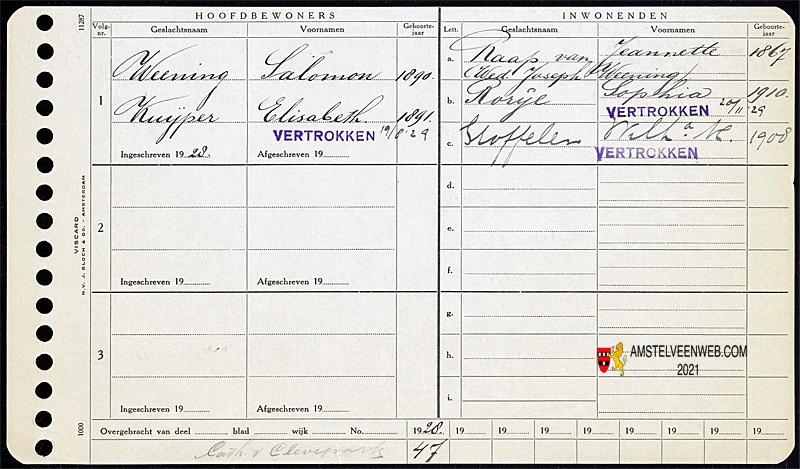 11287
HOOFDBEWONERS
INWONENDEN
Volg-nr.
Geslachtsnaam
Voornamen
Geboorte-jaar
Lett.
Geslachtsnaam
Voornamen
Geboorte-jaar
1
Weening Salomon 1890.
Kuijper Elisabeth. 1891.
VERTROKKEN 19/8 '29
Ingeschreven 1928. Afgeschreven 19
2
Ingeschreven 19 Afgeschreven 19
3
Ingeschreven 19 Afgeschreven 19
a. Raap van Jeannette 1867
(Wed. Joseph Weening)
b. Sophia 1910.
VERTROKKEN 20/11 29
c. Stoffelen Wilha M. 1908
VERTROKKEN
d.
e.
f.
g.
h.
i.
VISCARD
N.V. J. BLOCH & CO. - AMSTERDAM
1000
AMSTELVEENWEB.COM
2021
Overgebracht van deel blad wijk No. 1928. 19 19 19 19 19 19 19 19
Cath. v Clevepark 47